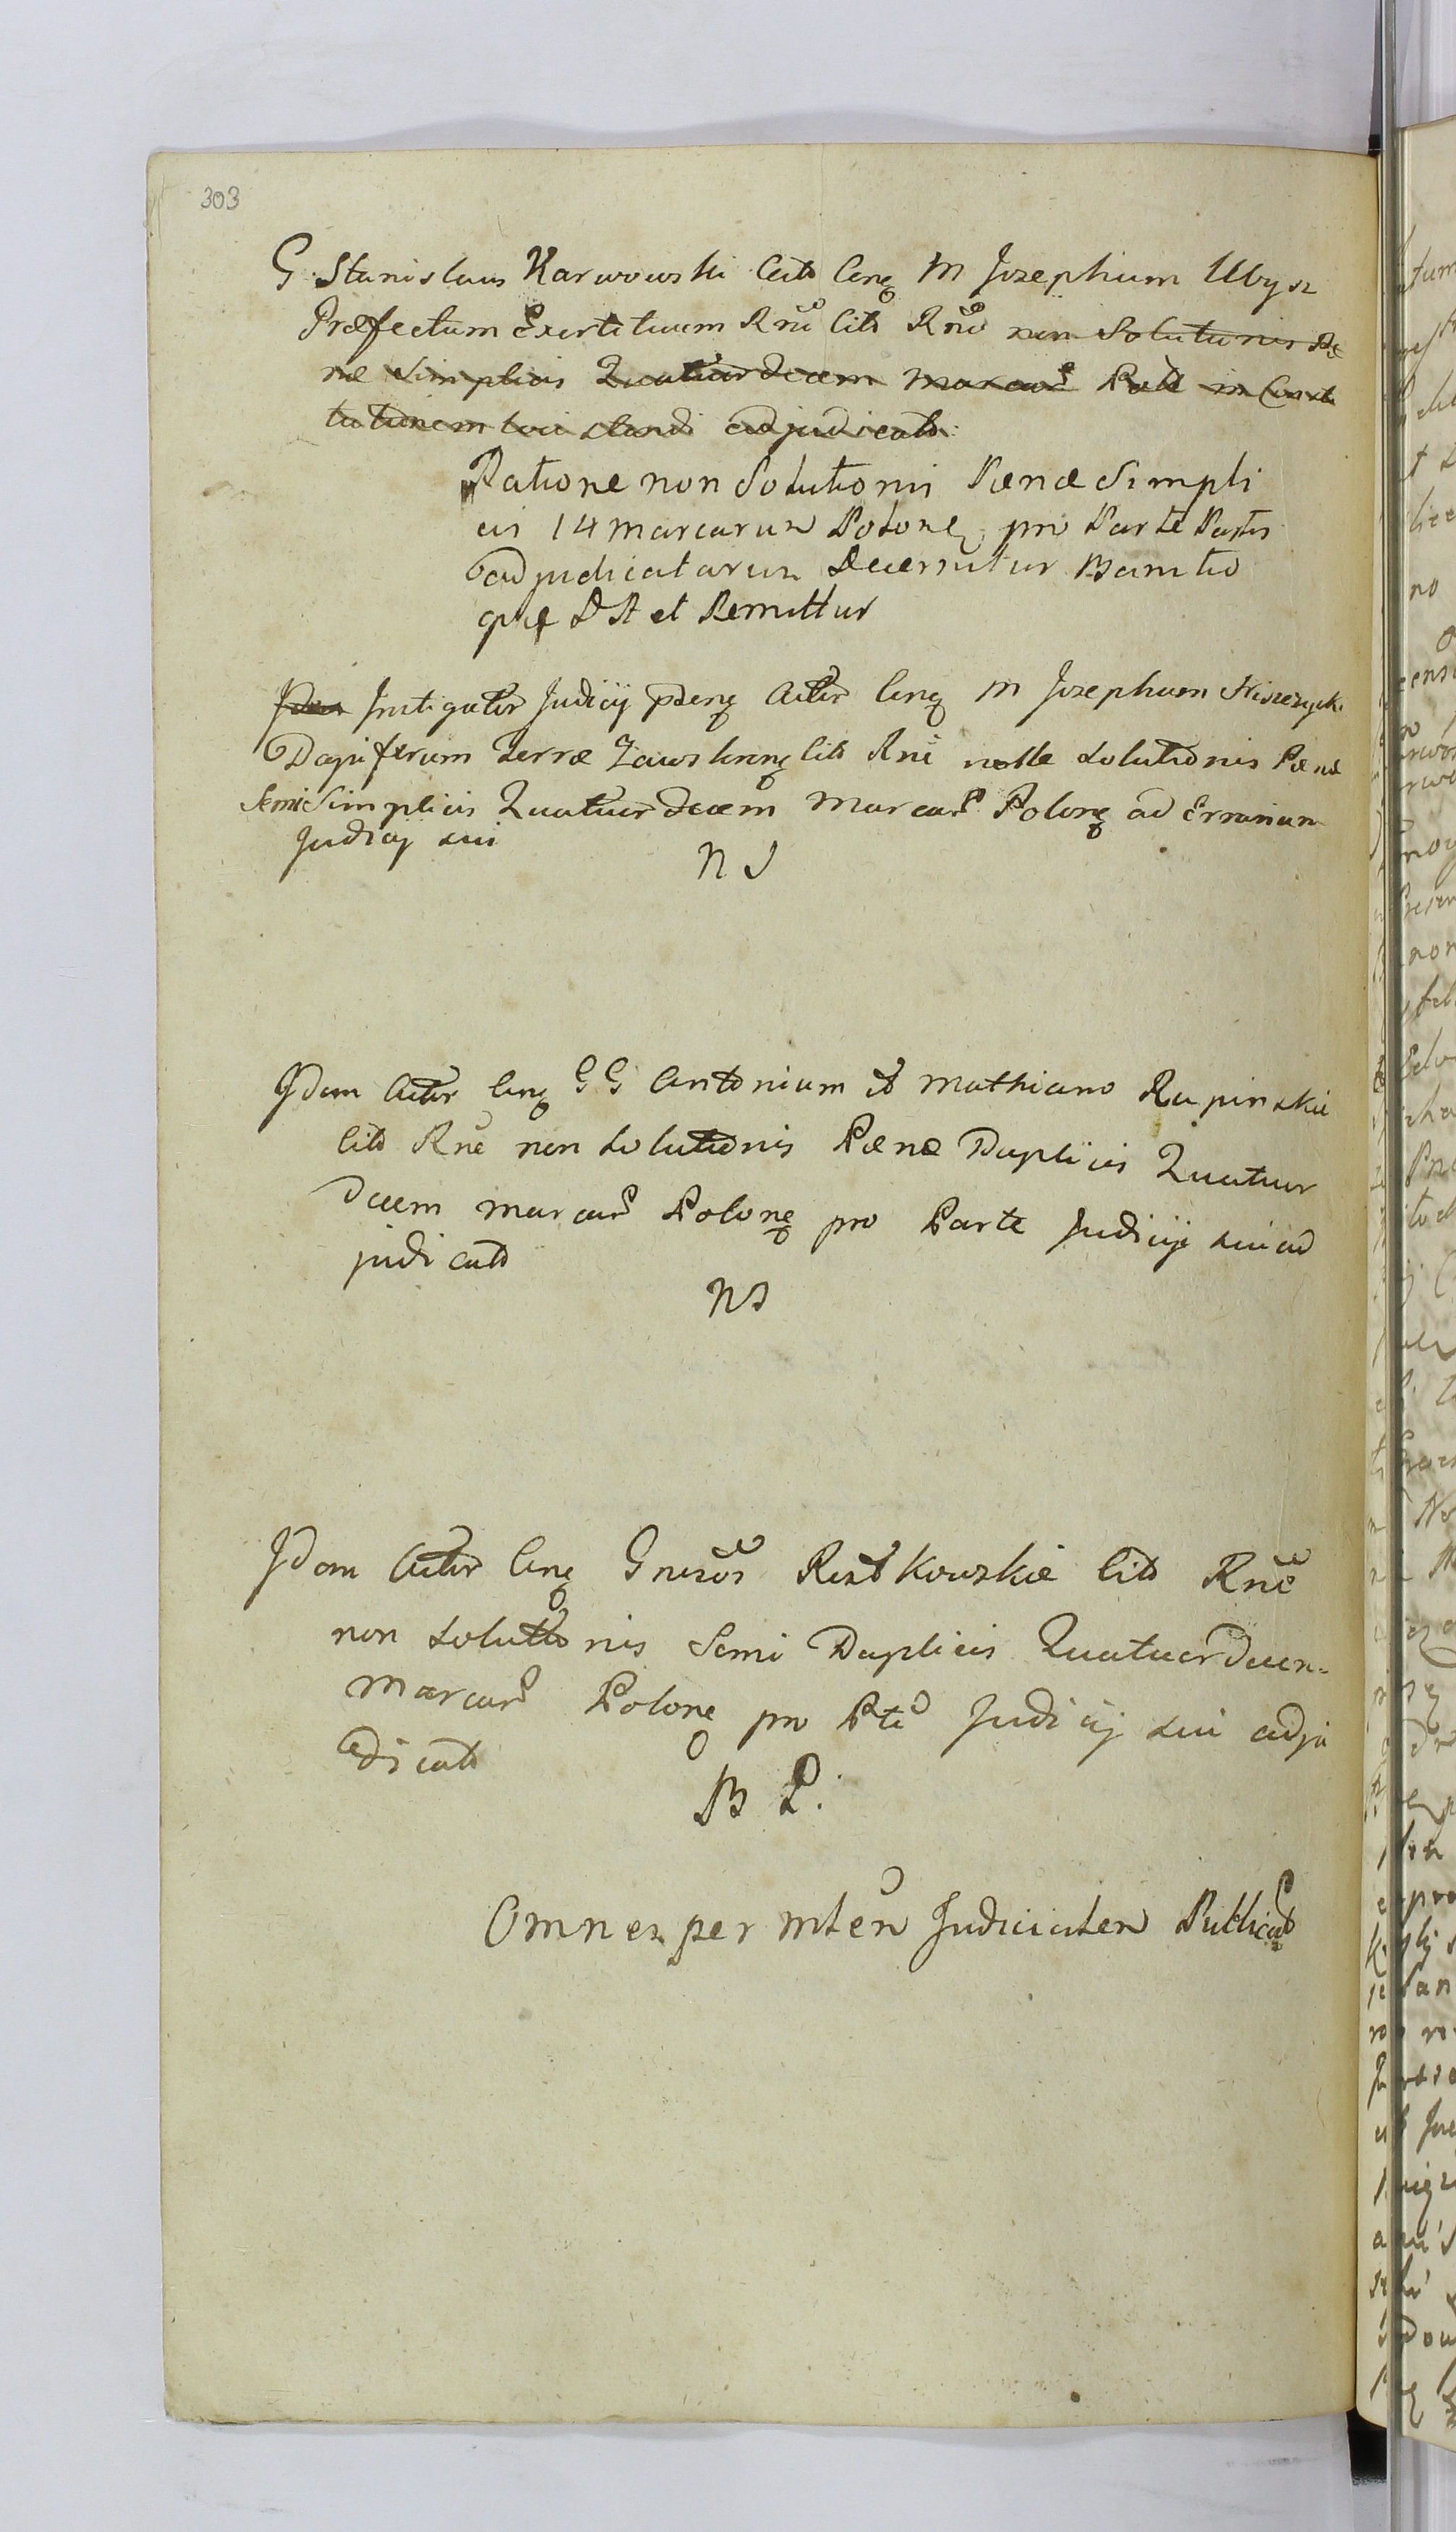 303
G. Stanislaus Karwowski Citt Cong M Josephum Ubysz
Præfectum Exertituum Rnē Citt Rnē non Solutionis Pæ
næ Simplicis Quatuordecem marcar Pate in Consti
tutionem loci standi adjudicato
Ratione non Solutionis Pænæ Simpli
cis 14 marcarum Polone pro Parte Partis
adjudicatarum Decernitur Bannitio
que DR et Remittur
Idem Instigator Judicij pseng Actor Cong M Josephum
Dapiferum Terræ Zawskreng Citt Rnē nolle solutionis Pænæ
Semi Simplicis Quatuordecem Marcar Polong ad Errarium
Judicij sui
N S
Idem Actor Cong GG Antonium et Mathiam Rupinskie
Citt Rnē non solutionis Pænæ Duplicis Quatuor
decem marcar Polong pro Parte Judicij sui ad
judicatt
NS
Idem Actor Cong Gnrsos Rostkowskie Citt Rnē
non solutionis Semi Duplicis Quatuordecen=
marcar Polone pro Pte Judicij sui adju
dicatt
B P.
Omnes per mlen Judicialen Publicat